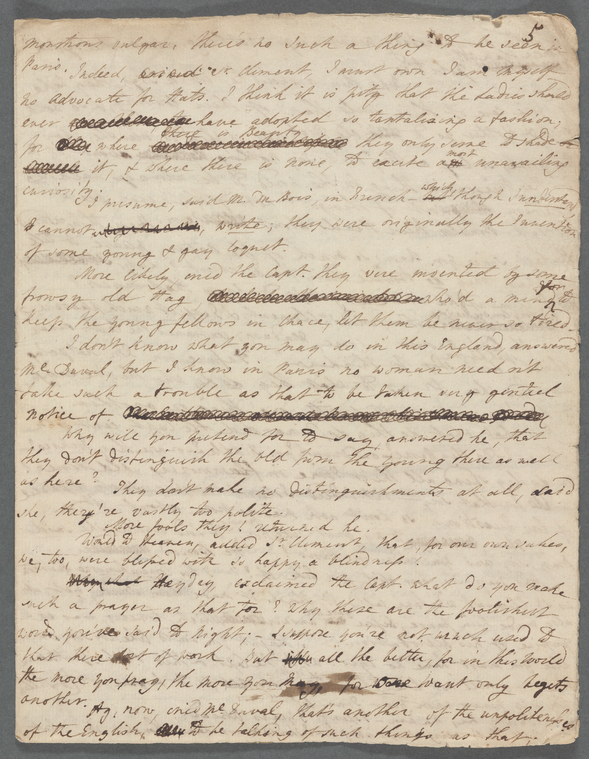 5
monstrous vulgar. there's no such a thing to be seen in
Paris.
Indeed, cried Sr Clement, I must own I am myself
no advocate for Hats. I think it is pity that the Ladies should
ever have adopted so tantalising a fashion;
for where there is Beauty they only serve to shade
it, & where there is none, to excite a most unavailing
curiosity.
I presume, said M. Du Bois, in French – which though I understand
I cannot write; they were originally the Invention
of some young & gay Coquet.
More likely cried the Capt. they were invented by some
frowsy old Hag who'd a mind for to
keep the young fellows in chace, let them be never so tired.
I don't know what you may do in this England, answered
Me Duval, but I know in Paris no woman need n't
take such a trouble as that to be taken very genteel
notice of
Why will you pretend for to say, answered he, that
they don't distinguish the old from the young there as well
as here? They don't make no distinguishments at all, said
she, they're vastly too polite.
More fools they! returned he.
Would to Heaven, added Sr Clement, that, for our own sakes,
we, too, were blessed with so happy a blindness!
Heyday, exclaimed the Capt. what do you make
such a prayer as that for? Why these are the foolishest
words you've said to Night; – I suppose you're not much used to
that there sort of work. but all the better, for in this World
the more you pray, the more you may, for want only begets
another.
Ay, now cried Me Duval, that's another of the unpolitenesses
of the English, to be talking of such things as that;